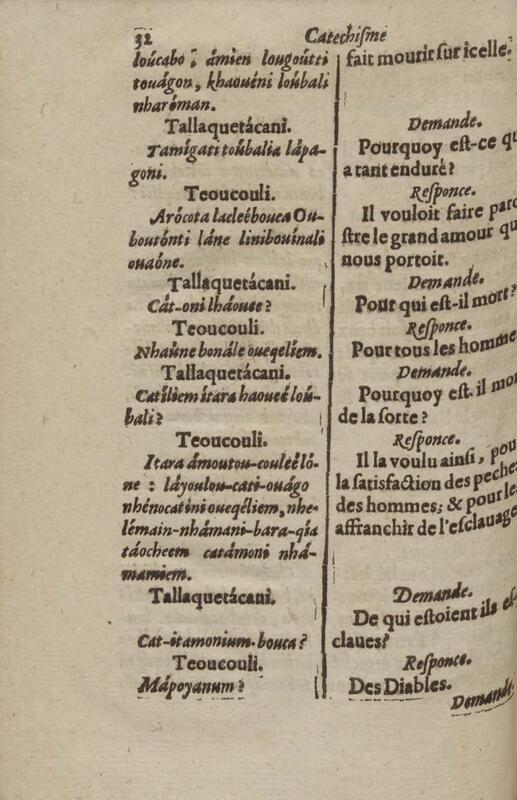 32 Catechisme
loúcabo ; ámien lougoútti
touágon, khaouéni loúbali
nharóman.
Tallaquetácani.
Tamígati toúbalia lápa-
goni.
Teoucouli.
Arócota lacleébouca Ou-
boutónti láne linibouínali
ouaóne.
Tallaquetácani.
Cát-oni lháouee?
Teoucouli.
Nhaúne bonále oueqeliem.
Tallaquetácani.
Catíliem ítara haoueé loú-
bali?
Teoucouli.
Itara ámoutou-couleé ló-
ne : láyoulou-cati-ouágo
nhénocatini oueqéliem, nhe-
lémain-nhámani-bara-qia
táocheem catámoni nhá-
mamiem.
Tallaquetácani.
Cat-itamonium-bouca?
Teoucouli.
Mápoyanum?
fait mourir sur icelle.
Demande.
Pourquoy est-ce qu
a tant enduré?
Responce.
Il vouloit faire paro
stre le grand amour qu
nous portoit.
Demande.
Pour qui est-il mort?
Responce.
Pour tous les homme
Demande.
Pourquoy est-il mo
de la sorte?
Responce.
Il la voulu ainsi, pou
la satisfaction des peche
des hommes; & pour le
affranchir de l'esclauage
Demande.
De qui estoient ils es
claues?
Responce.
Des Diables.
Demande